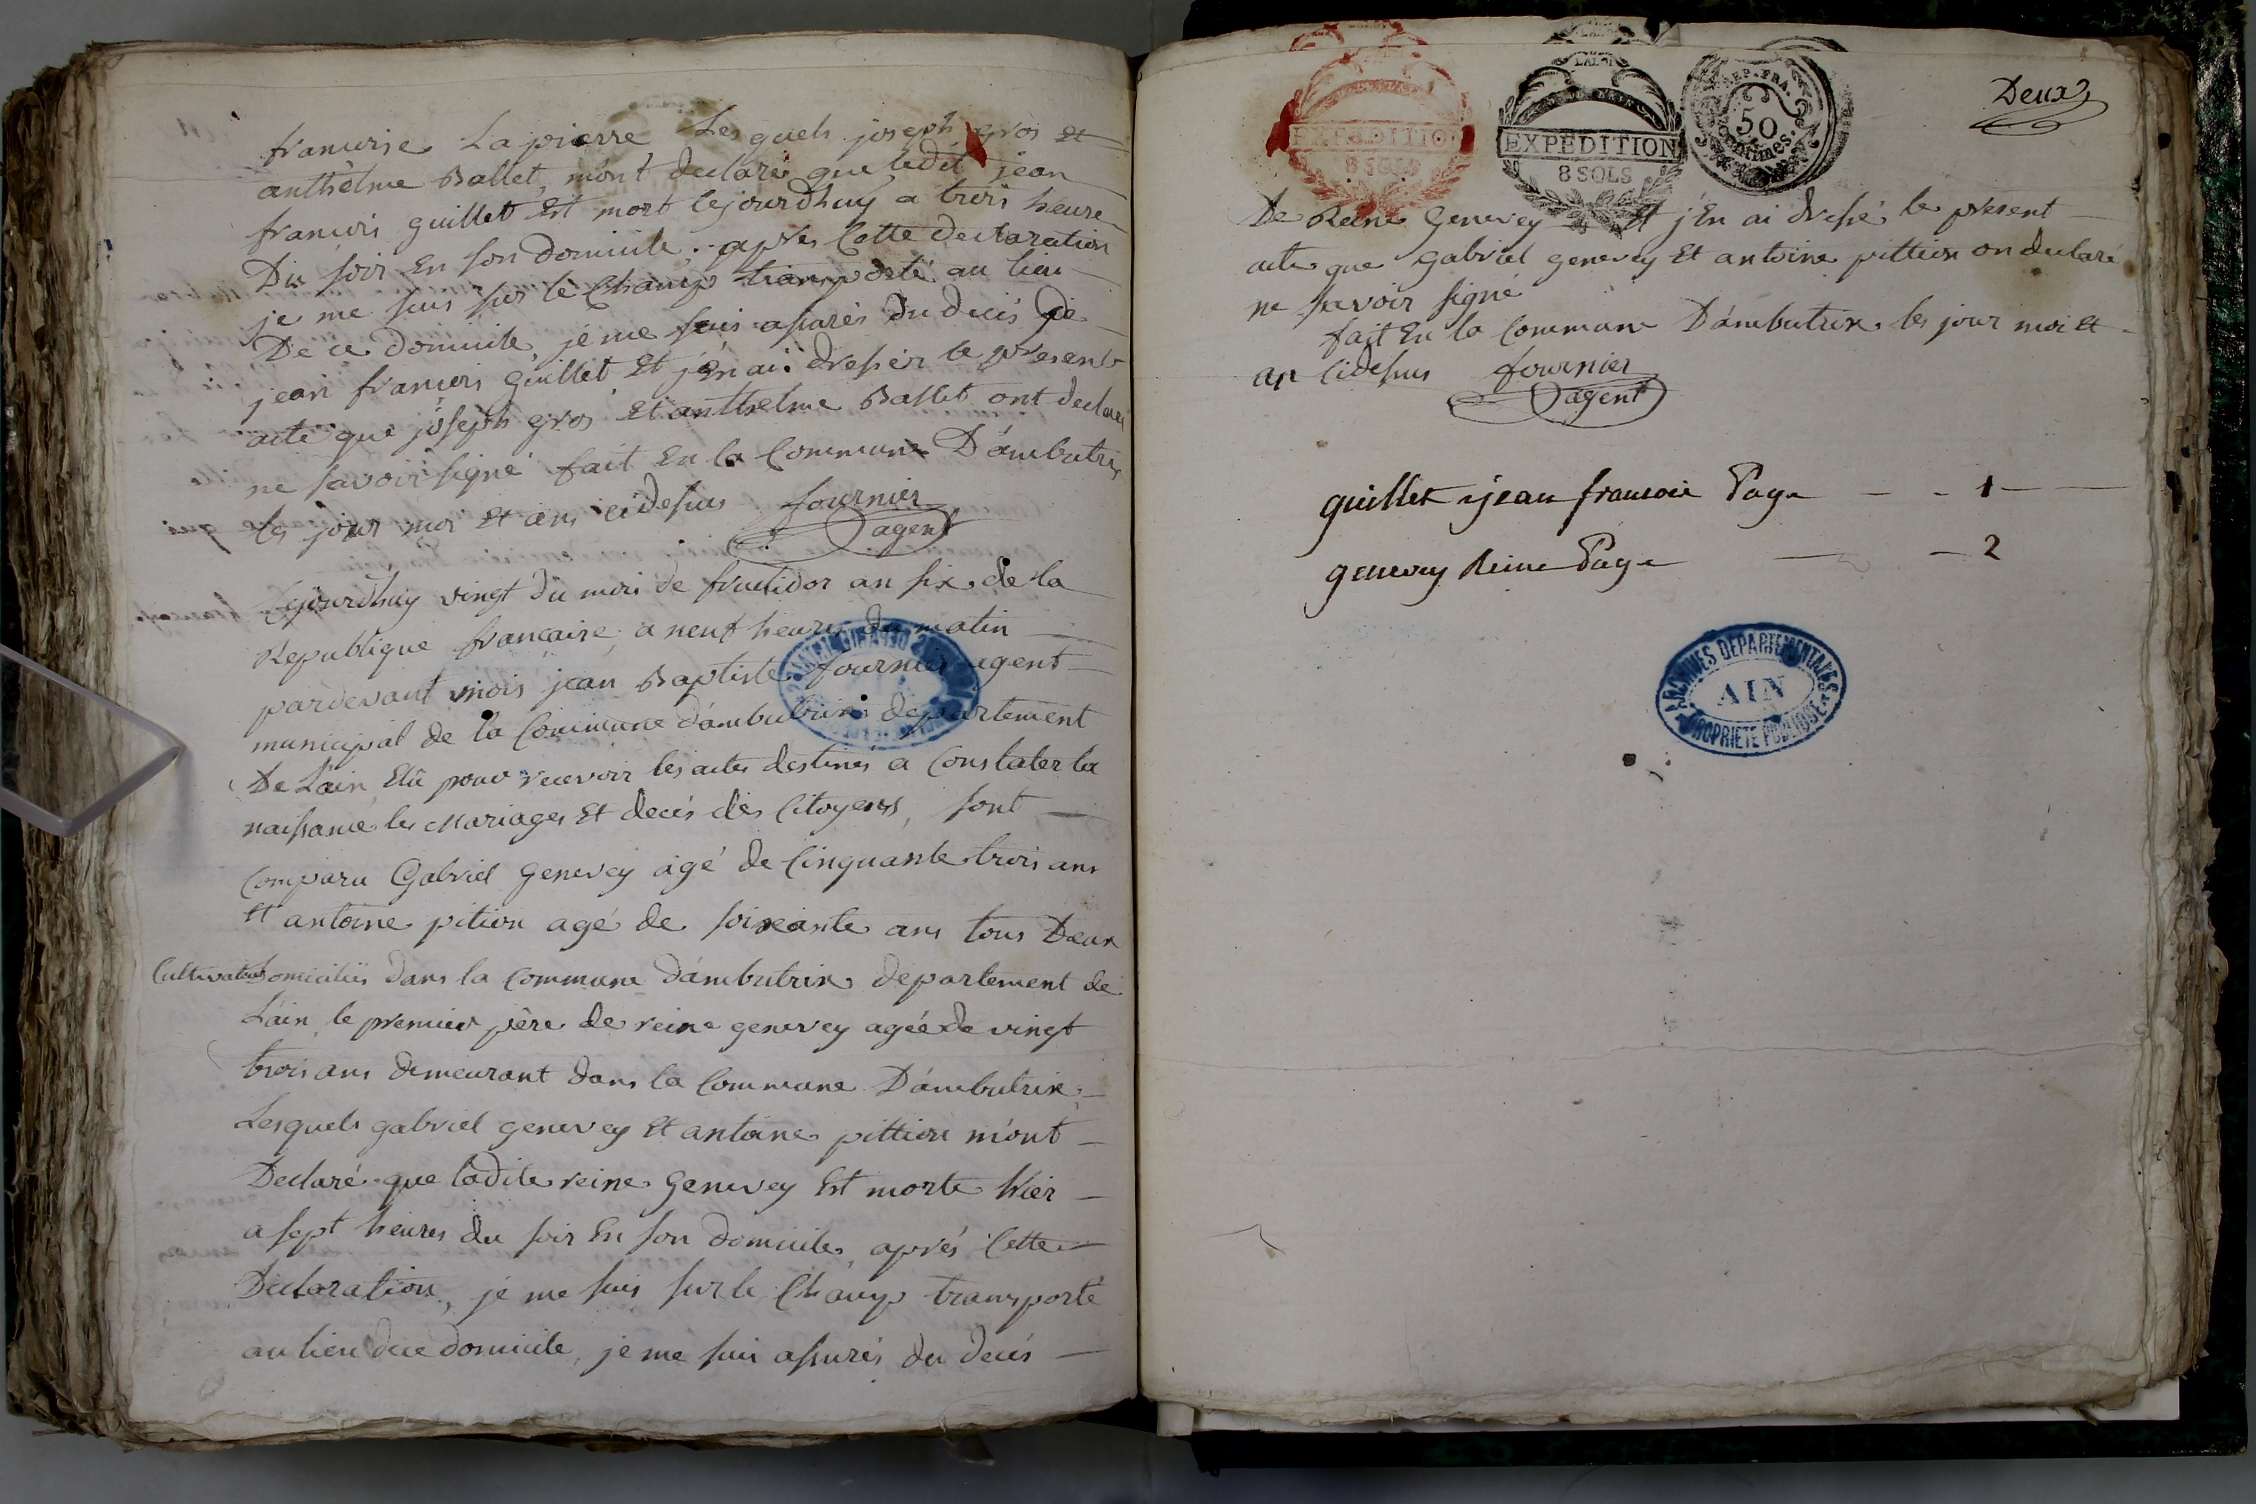 francoise Lapierre Lesquels joseph gros Et
anthelme Ballet, m'ont declaré que ledit jean
francois guillet Est mort cejourdhuy a trois heure
Du soir En son domicile, apres Cette declaration
je me suis sur le Champ transporté au lieu
De ce domicile, je me suis assurés du decès de
jean francois guillet Et j'En ai dressér le present
acte que joseph gros Et anthelme Ballet ont declaré
ne savoir signé fait En la Commune D'ambutrix
les jour moi Et ans cidessus fournier
agent
Cejourdhuy vingt du mois de fructidor an six de la
Republique francaise, a neuf heures du matin
pardevant mois jean Baptiste fournier agent
municipal de la Commune d'ambutrix departement
De L'ain Elû pour recevoir les actes destinés a Constater la
naissance les Mariages Et decès des Citoyens, sont
Comparu Gabriel genevey agé de Cinquante trois ans
Et antoine pition agé de soixante ans tous Deux
Cultivateurs domiciliés dans la Commune d'ambutrix departement de
L'ain le premier père de reine genevey agée de vingt
trois ans demeurant dans la Commune D'ambutrix,
Lesquels gabriel genevey Et antoine pittion m'ont
Declaré que ladite reine Genevey Est morte hier
a sept heures du soir En son domicile, après Cette
Declaration, je me suis sur le Champ transporté
au lieu de ce domicile, je me suis assurés du decès
Deux
EXPEDITION
8 SOLS
EXPEDITION
8 SOLS
REP. FRA.
50
Centimes.
De Reine Genevey Et j'En ai dressé le present
acte que Gabriel genevey Et antoine pittion on declaré
ne savoir signé
fait En la Commune D'ambutrix les jour moi Et
an Cidessus fournier
agent
guillet jean francois Page - - 1
genevey Reine Page - - 2
ARCHIVES DEPARTEMENTALES
AIN
PROPRIETE PUBLIQUE